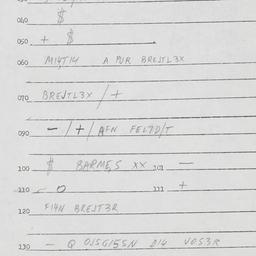 040 $
050 + $
060 M14T14 A PUR BREJTL3X
070 BREJTL3X / +
090 - / + / AFN FELTD/T
100 $ BARMES XX 101 -
110 - O 111 +
120 F14N BREJT3R
130 - Q OJSG155N D16 VOS3R